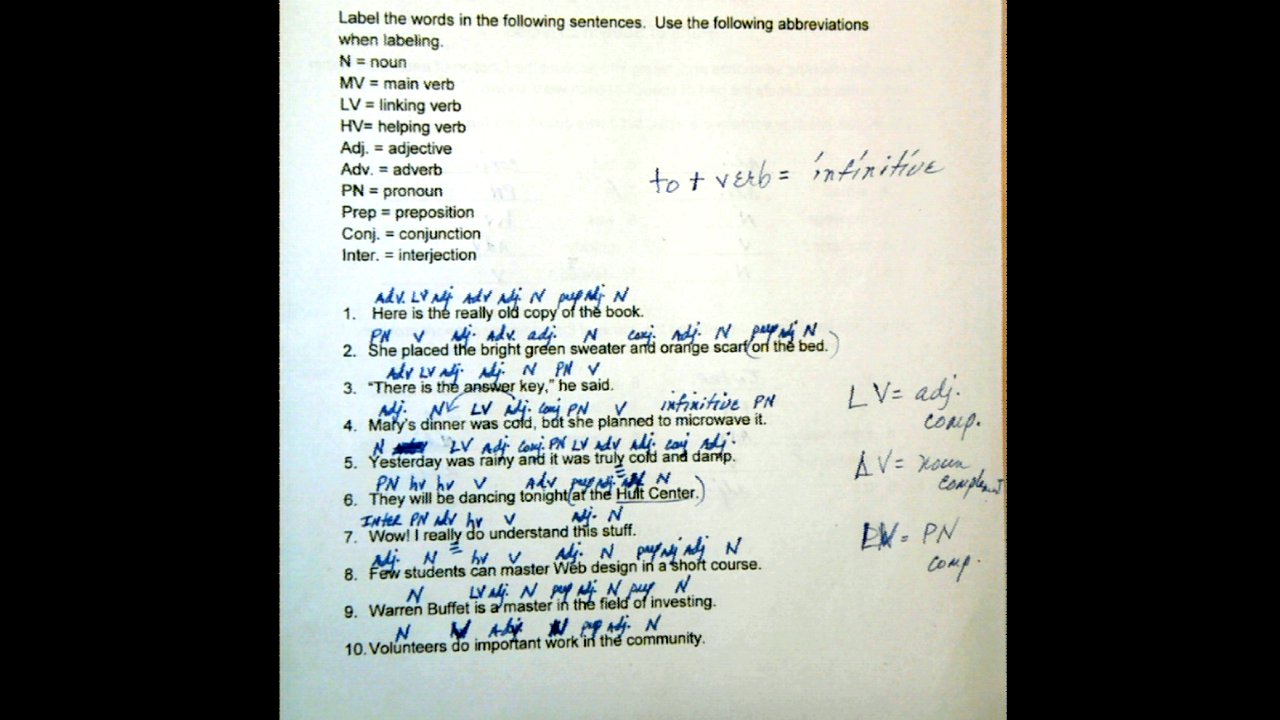 Label the words in the following sentences. Use the following abbreviations
when labeling.
N = noun
MV = main verb
LV = linking verb
HV= helping verb
Adj. = adjective
Adv. = adverb
to + verb = infinitive
PN = pronoun
Prep = preposition
Conj. = conjunction
Inter. = interjection
Adv. LV Adj Adv Adj N prep Adj N
1. Here is the really old copy of the book.
PN V Adj. Adv. adj. N conj. Adj. N prep adj N
2. She placed the bright green sweater and orange scarf (on the bed.)
Adv LV Adj. Adj. N PN V
3. "There is the answer key," he said.
Adj. N LV Adj. conj PN V infinitive PN
LV = adj. comp.
4. Mary's dinner was cold, but she planned to microwave it.
N LV Adj conj. PN LV Adv Adj. conj Adj.
5. Yesterday was rainy and it was truly cold and damp.
LV = noun
PN hv hv V Adv prep adj. N
6. They will be dancing tonight (at the Hult Center.)
Inter PN adv hv V Adj. N
7. Wow! I really do understand this stuff.
= PN comp.
Adj. N hv V Adj. N prep adj adj N
8. Few students can master Web design in a short course.
N LV Adj. N prep adj. N prep N
9. Warren Buffet is a master in the field of investing.
N Adj. N prep Adj. N
10. Volunteers do important work in the community.